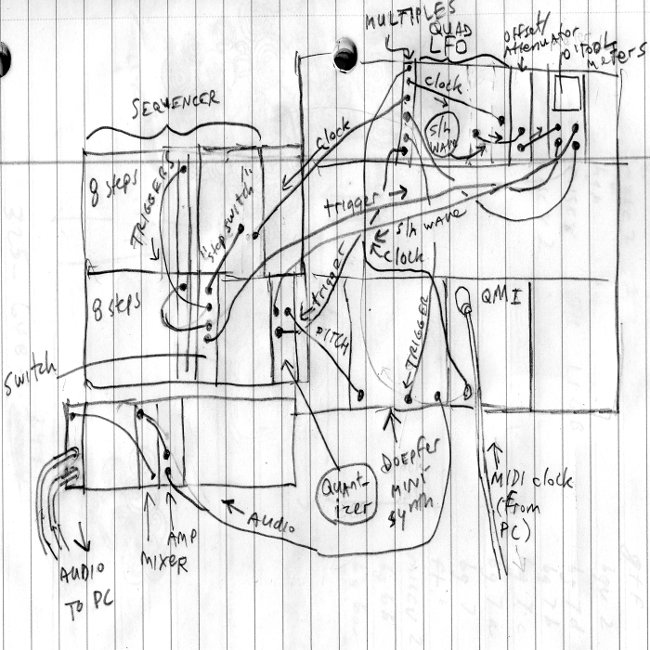 MULTIPLES
QUAD
LFO
offset/
Attenuator
meters
SEQUENCER
clock
S/h
WAVE
clock
8 steps
TRIGGERS
"stop switch"
trigger
S/h WAVE
clock
8 steps
trigger
PITCH
TRIGGER
QMI
switch
QUANT-
izer
DOEPFER
MINI
synth
MIDI clock
(From
PC)
AUDIO
AMP
MIXER
AUDIO
TO PC